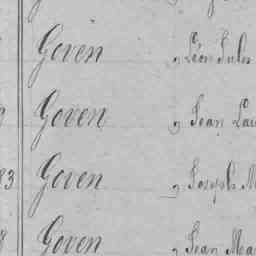 Goven, Léon Jules
Goven, Jean Lau
83 Goven, Joseph M
Goven, Jean Ma